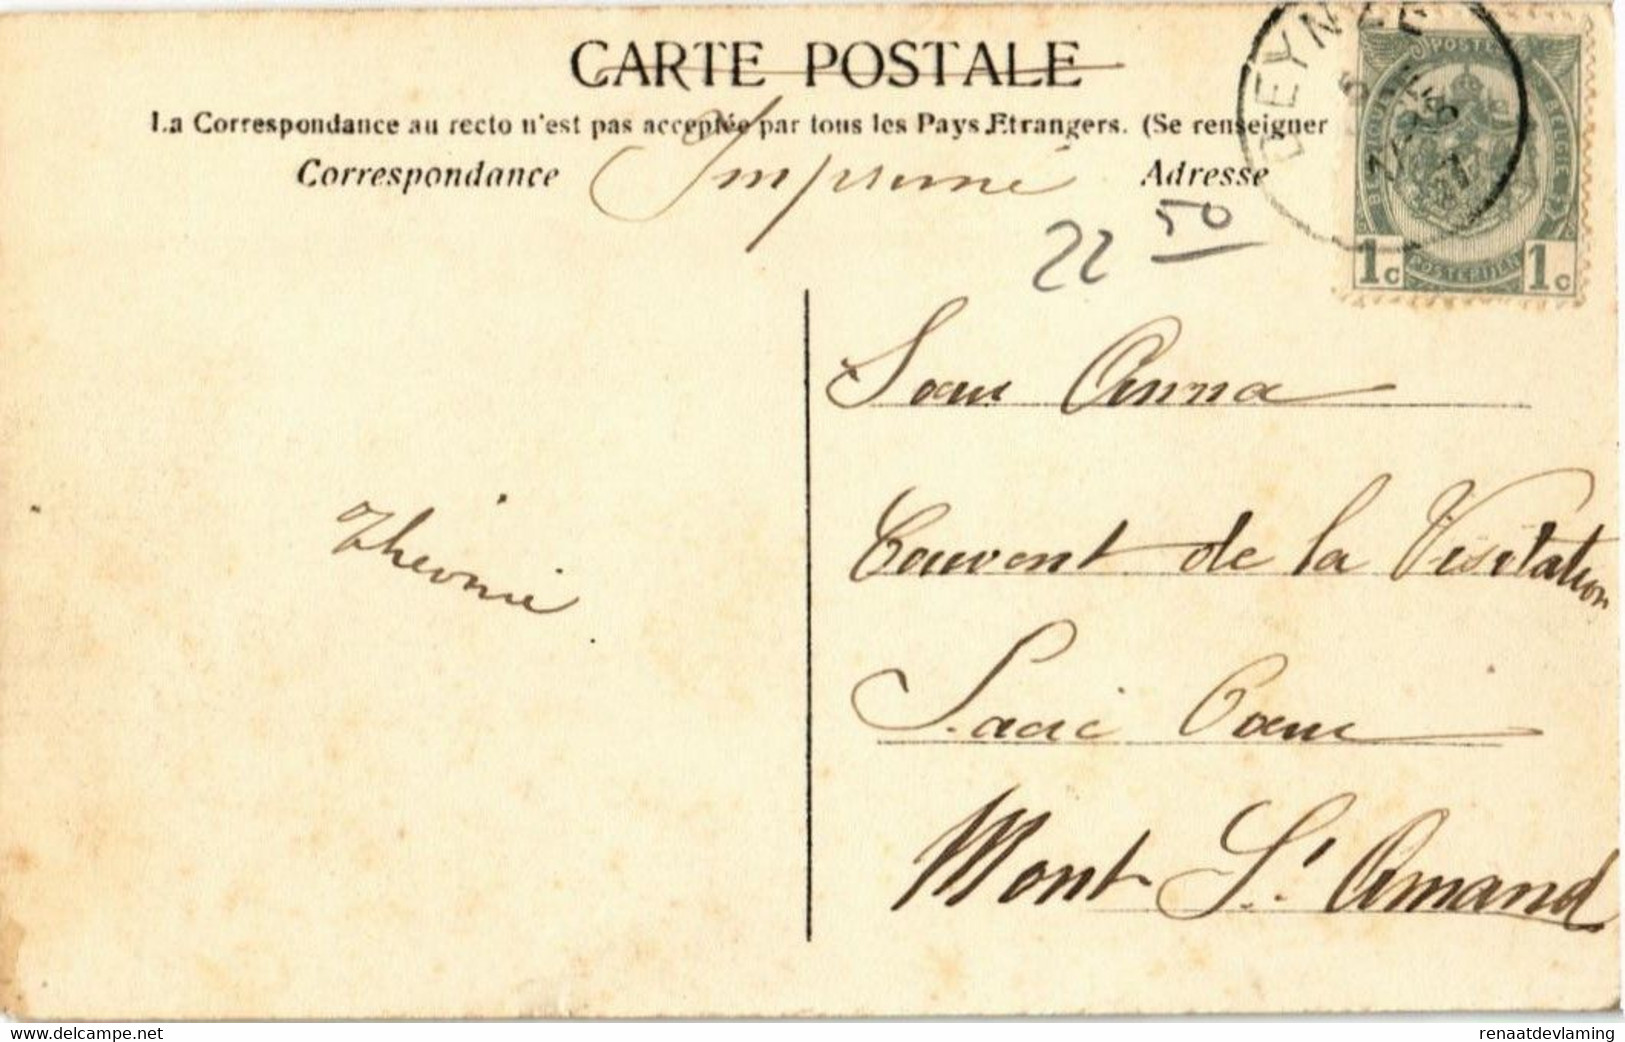 CARTE POSTALE
La Correspondance au recto n'est pas acceptée par tous les Pays Etrangers. (Se renseigner
Correspondance
Imprimé
Adresse
22 50
DEYNZE
POSTES
BELGIQUE
BELGIË
1c POSTERIJEN 1c
Sœur Anna
Couvent de la Visitation
Sacré Cœur
Mont St Amand
delcampe.net
renaatdevlaming